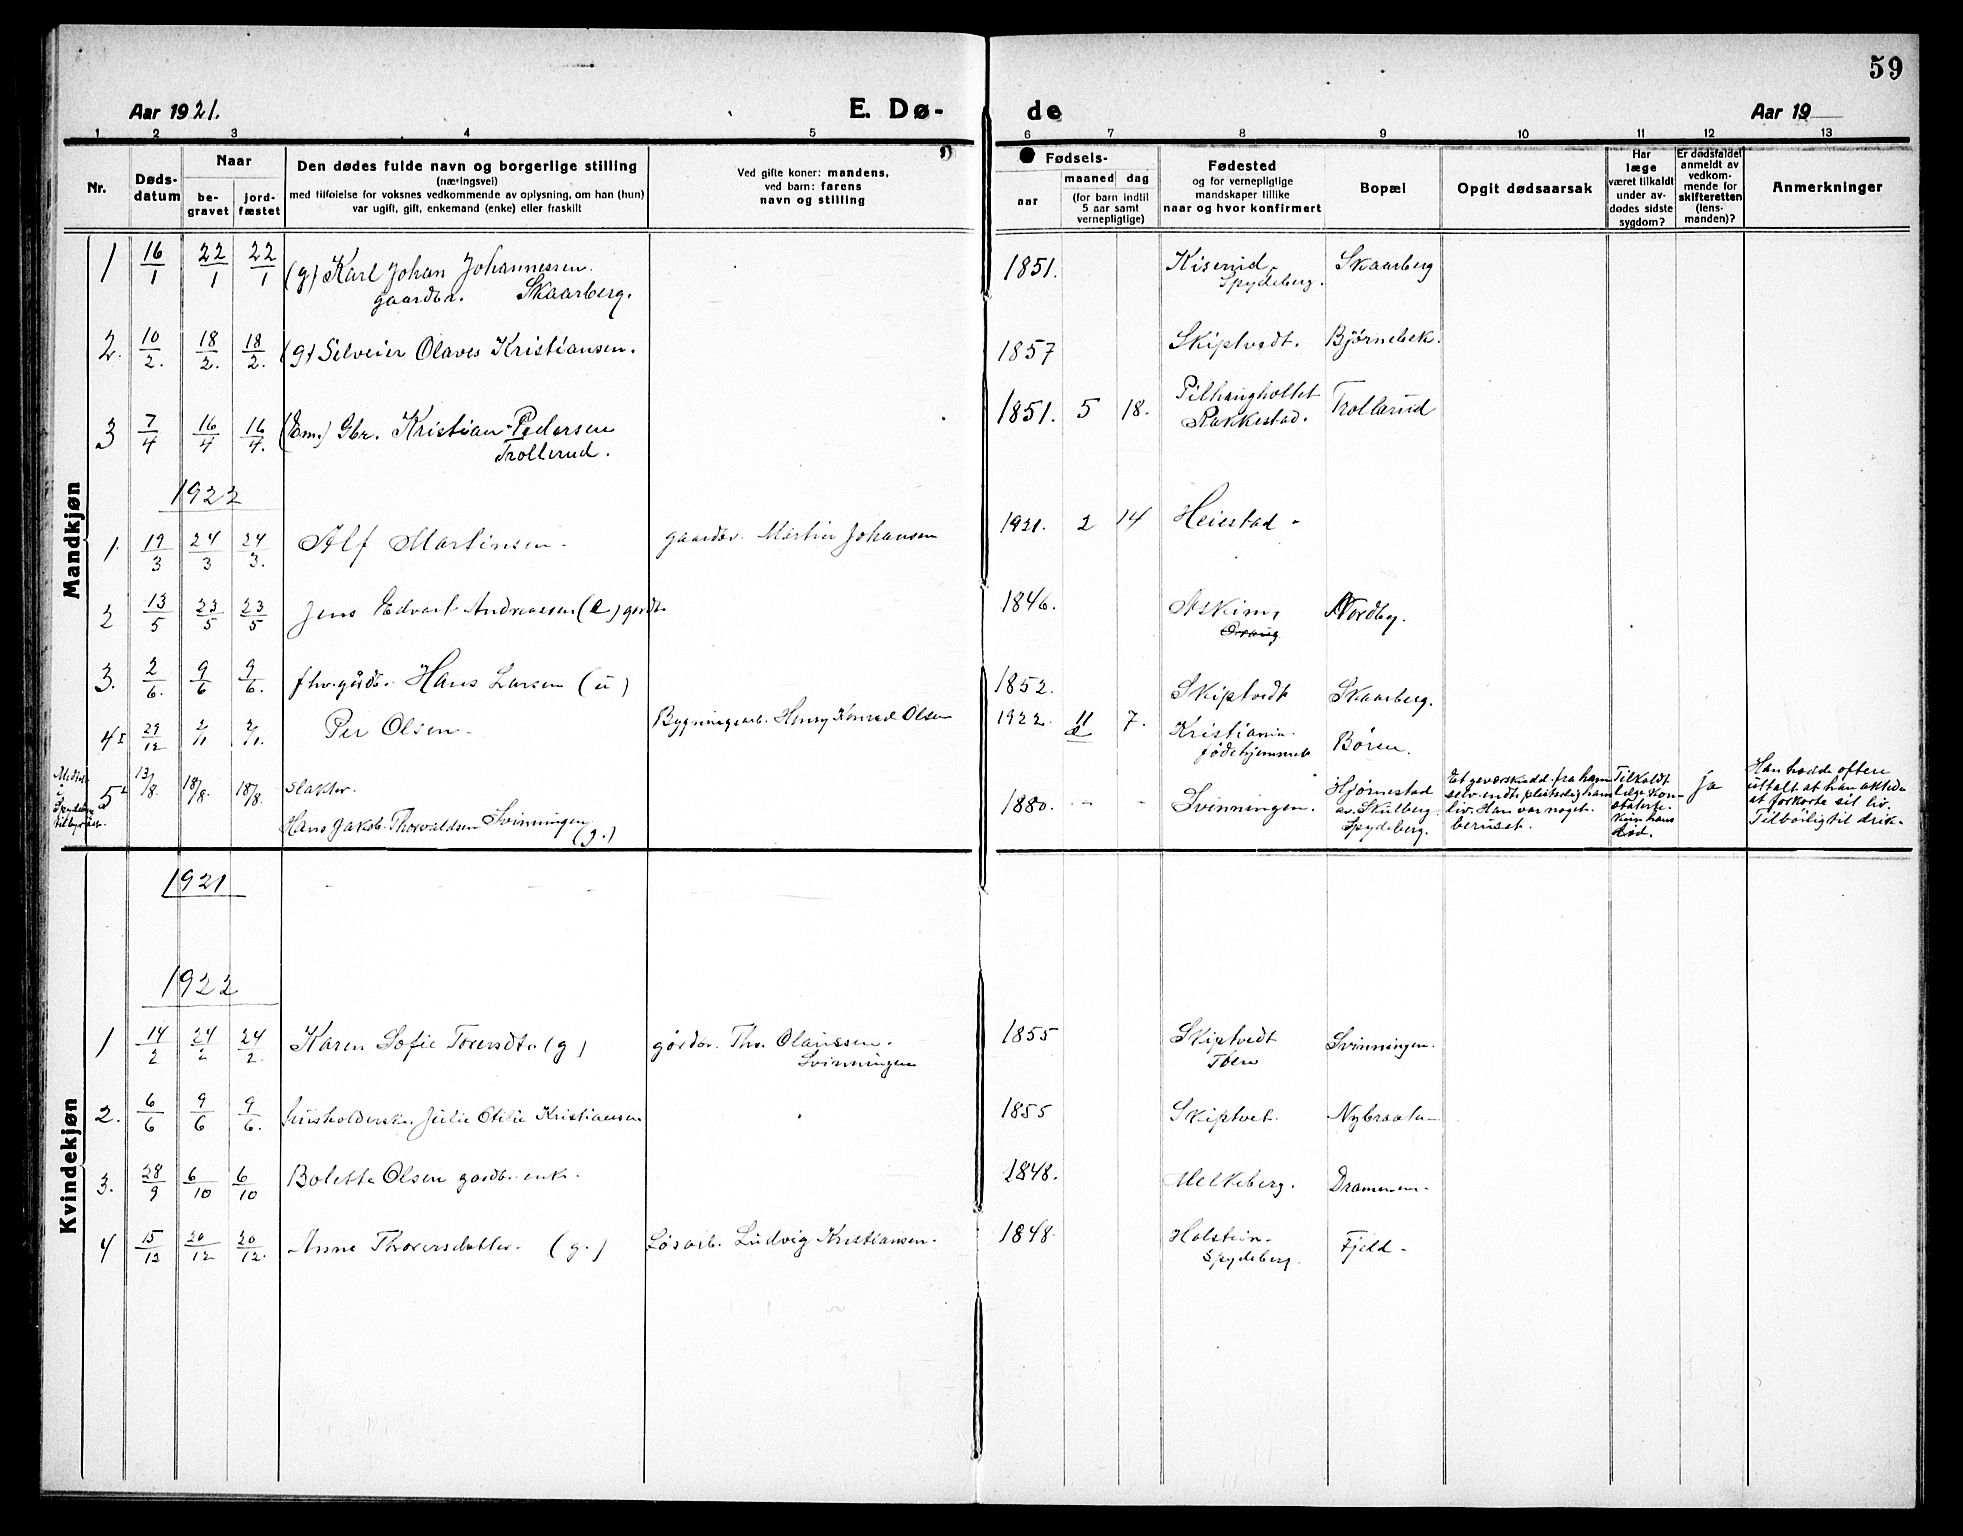 59
Aar 1921.
E. Dø-
de
Aar 19
1 2 3 4 5 6 7 8 9 10 11 12 13
Nr.
Døds-
datum
Naar
be-
gravet
jord-
fæstet
Den dødes fulde navn og borgerlige stilling
(næringsvei)
med tilføielse for voksnes vedkommende av oplysning, om han (hun)
var ugift, gift, enkemand (enke) eller fraskilt
Ved gifte koner: mandens,
ved barn: farens
navn og stilling
Fødsels-
aar
maaned dag
(for barn indtil
5 aar samt
vernepligtige)
Fødested
og for vernepligtige
mandskaper tillike
naar og hvor konfirmert
Bopæl
Opgit dødsaarsak
Har
læge
været tilkaldt
under av-
dødes sidste
sygdom?
Er dødsfaldet
anmeldt av
vedkom-
mende for
skifteretten
(lens-
manden)?
Anmerkninger
Mandkjøn
1 16/1 22/1 22/1 (g) Karl Johan Johannessen. 1851. Kiserud, Skaarberg
gaardbr. Skaarberg. Spydeberg.
2. 10/2. 18/2. 18/2. (g) Selveier Olaves Kristiansen. 1857 Skiptvedt. Bjørnebek.
3 7/4 16/4 16/4. (Em.) Gbr. Kristian Pedersen 1851. 5 18. Pilhaugholtet Trollerud
Trollerud. Rakkestad.
1922
1. 19/3 24/3 24/3. Alf Martinsen. gaardbr. Martin Johansen 1921. 2 14 Heiestad.
2 13/5 23/5 23/5 Jens Edvart Andreassen (e) gardb. 1846. Askim, Nordby.
3. 2/6. 9/6 9/6. fhv. gårdb. Hans Larsen (u) 1852. Skiptvedt Skaarberg.
4 29/12 2/1 2/1. Per Olsen. Bygningsarb. Henry Konrad Olsen 1922. 11 7. Kristiania Børen.
fødehjemmet
5 13/8. 18/8. 18/8. slakter. 1880. - - Svinningen. Hjørnestad
Hans Jakob Thorvaldsen Svinningen (g.)
av. Skulberg
Spydeberg.
Et geværskudd fra ham
selv endte pludselig hans
liv. Han var noget
beruset.
Tilkaldt
læge kon-
staterte
kun hans
død.
ja
Han hadde oftere
uttalt at han aktede
at forkorte sit liv.
Tilbøilig til drik.
1921
1922
Kvindekjøn
1 14/2 24/2 24/2. Karen Sofie Torersdt. (g) gårdbr. Tho. Olaussen. 1855 Skiptvedt Svinningen.
Svinningen
2. 6/6 9/6 9/6. Husholdersk. Julie Otilie Kristiansen 1855 Skiptvet.
3. 28/9 6/10 6/10 Bolette Olsen gardbr. enk. 1848. Melkeberg. Drammen.
4 15/12 20/12 20/12. Anne Thorersdatter. (g.) Løsarb. Ludvig Kristiansen. 1848. Holstein. Fjeld.
Spydeberg.